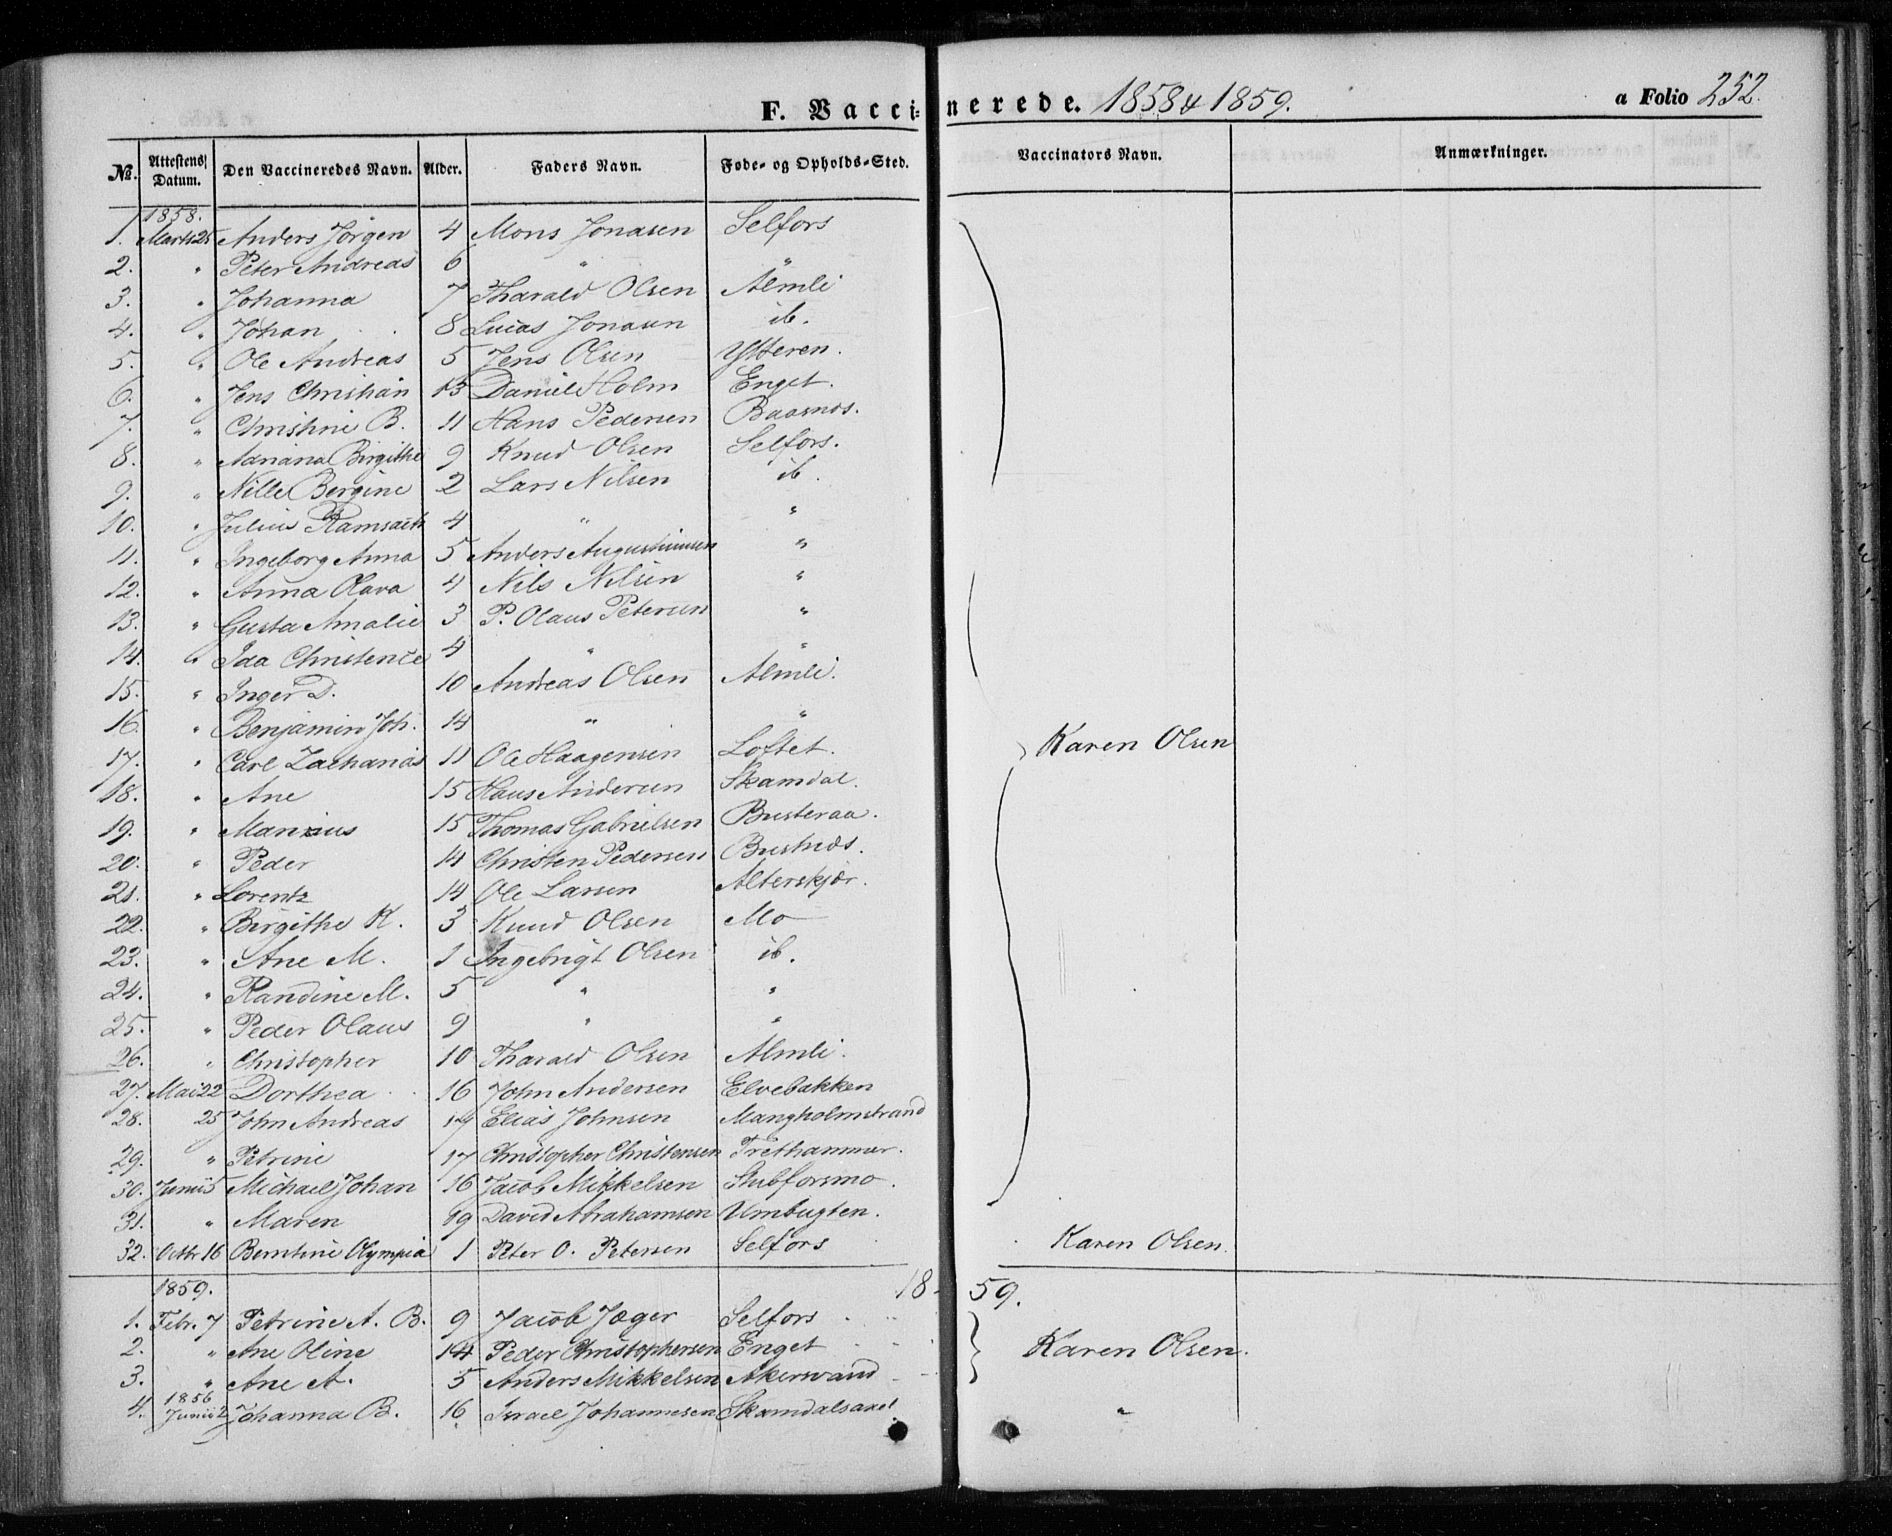 F. Vaccinerede. 1858 & 1859. a Folio 252.
№. Attestens Datum. Den Vaccineredes Navn. Alder. Faders Navn. Føde- og Opholds-Sted. Vaccinators Navn. Anmærkninger.
1858.
1. Marts 25 Anders Jørgen 4 Mons Jonasen Selfors
2. " Peter Andreas 6 " "
3. " Johanna 7 Tharald Olsen Almli
4. " Johan 8 Lucas Jonasen ib.
5. " Ole Andreas 5 Jens Olsen Ytteren.
6. " Jens Christian 13 Daniel Holm Enget.
7. " Christine B. 11 Hans Pedersen Baasnæs.
8. " Adriana Birgithe 9 Knud Olsen Selfors.
9. " Nille Bergine 2 Lars Nilsen ib.
10. " Julius Ramsaeth 4 " "
11. " Ingeborg Anna 5 Anders Augustinusen "
12. " Anna Olava 4 Nils Nilsen "
13. " Gusta Amalie 3 P. Olaus Petersen "
14. " Ida Christence 4 " "
15. " Inger D. 10 Andreas Olsen Almli.
16. " Benjamin Joh. 14 " "
17. " Carl Zacharias 11 Ole Haagensen Loftet. Karen Olsen
18. " Ane 15 Hans Andersen Skamdal.
19. " Marius 15 Thomas Gabrielsen Busteraa.
20. " Peder 14 Christen Pedersen Bustnæs.
21. " Lorentz 14 Ole Larsen Alterskjær.
22. " Birgithe K. 3 Knud Olsen Mo
23. " Ane M. 1 Ingebrigt Olsen ib.
24. " Randine M. 5 " "
25. " Peder Olaus 9 " "
26. " Christopher 10 Tharald Olsen Almli.
27. Mai 22 Dorthea 16 John Andersen Elvebakken
28. 25 John Andreas 17 Elias Johnsen Mangholmstrand
29. " Petrine 17 Christopher Christensen Trethammer.
30. Junii 5 Michael Johan 16 Jacob Mikkelsen Stubforsmo.
31. " Maren 19 David Abrahamsen Umbugten.
32. Octbr 16 Berntine Olympia 1 Peter O. Petersen Selfors Karen Olsen.
1859. 1859.
1. Febr. 7 Petrine A. B. 9 Jacob Jæger Selfors
2. " Ane Oline 14 Peder Christophersen Enget Karen Olsen.
3. " Ane A. 5 Anders Mikkelsen Akersvand
1856
4. Junii 2 Johanna B. 16 Israel Johannesen Skamdalsaxel "